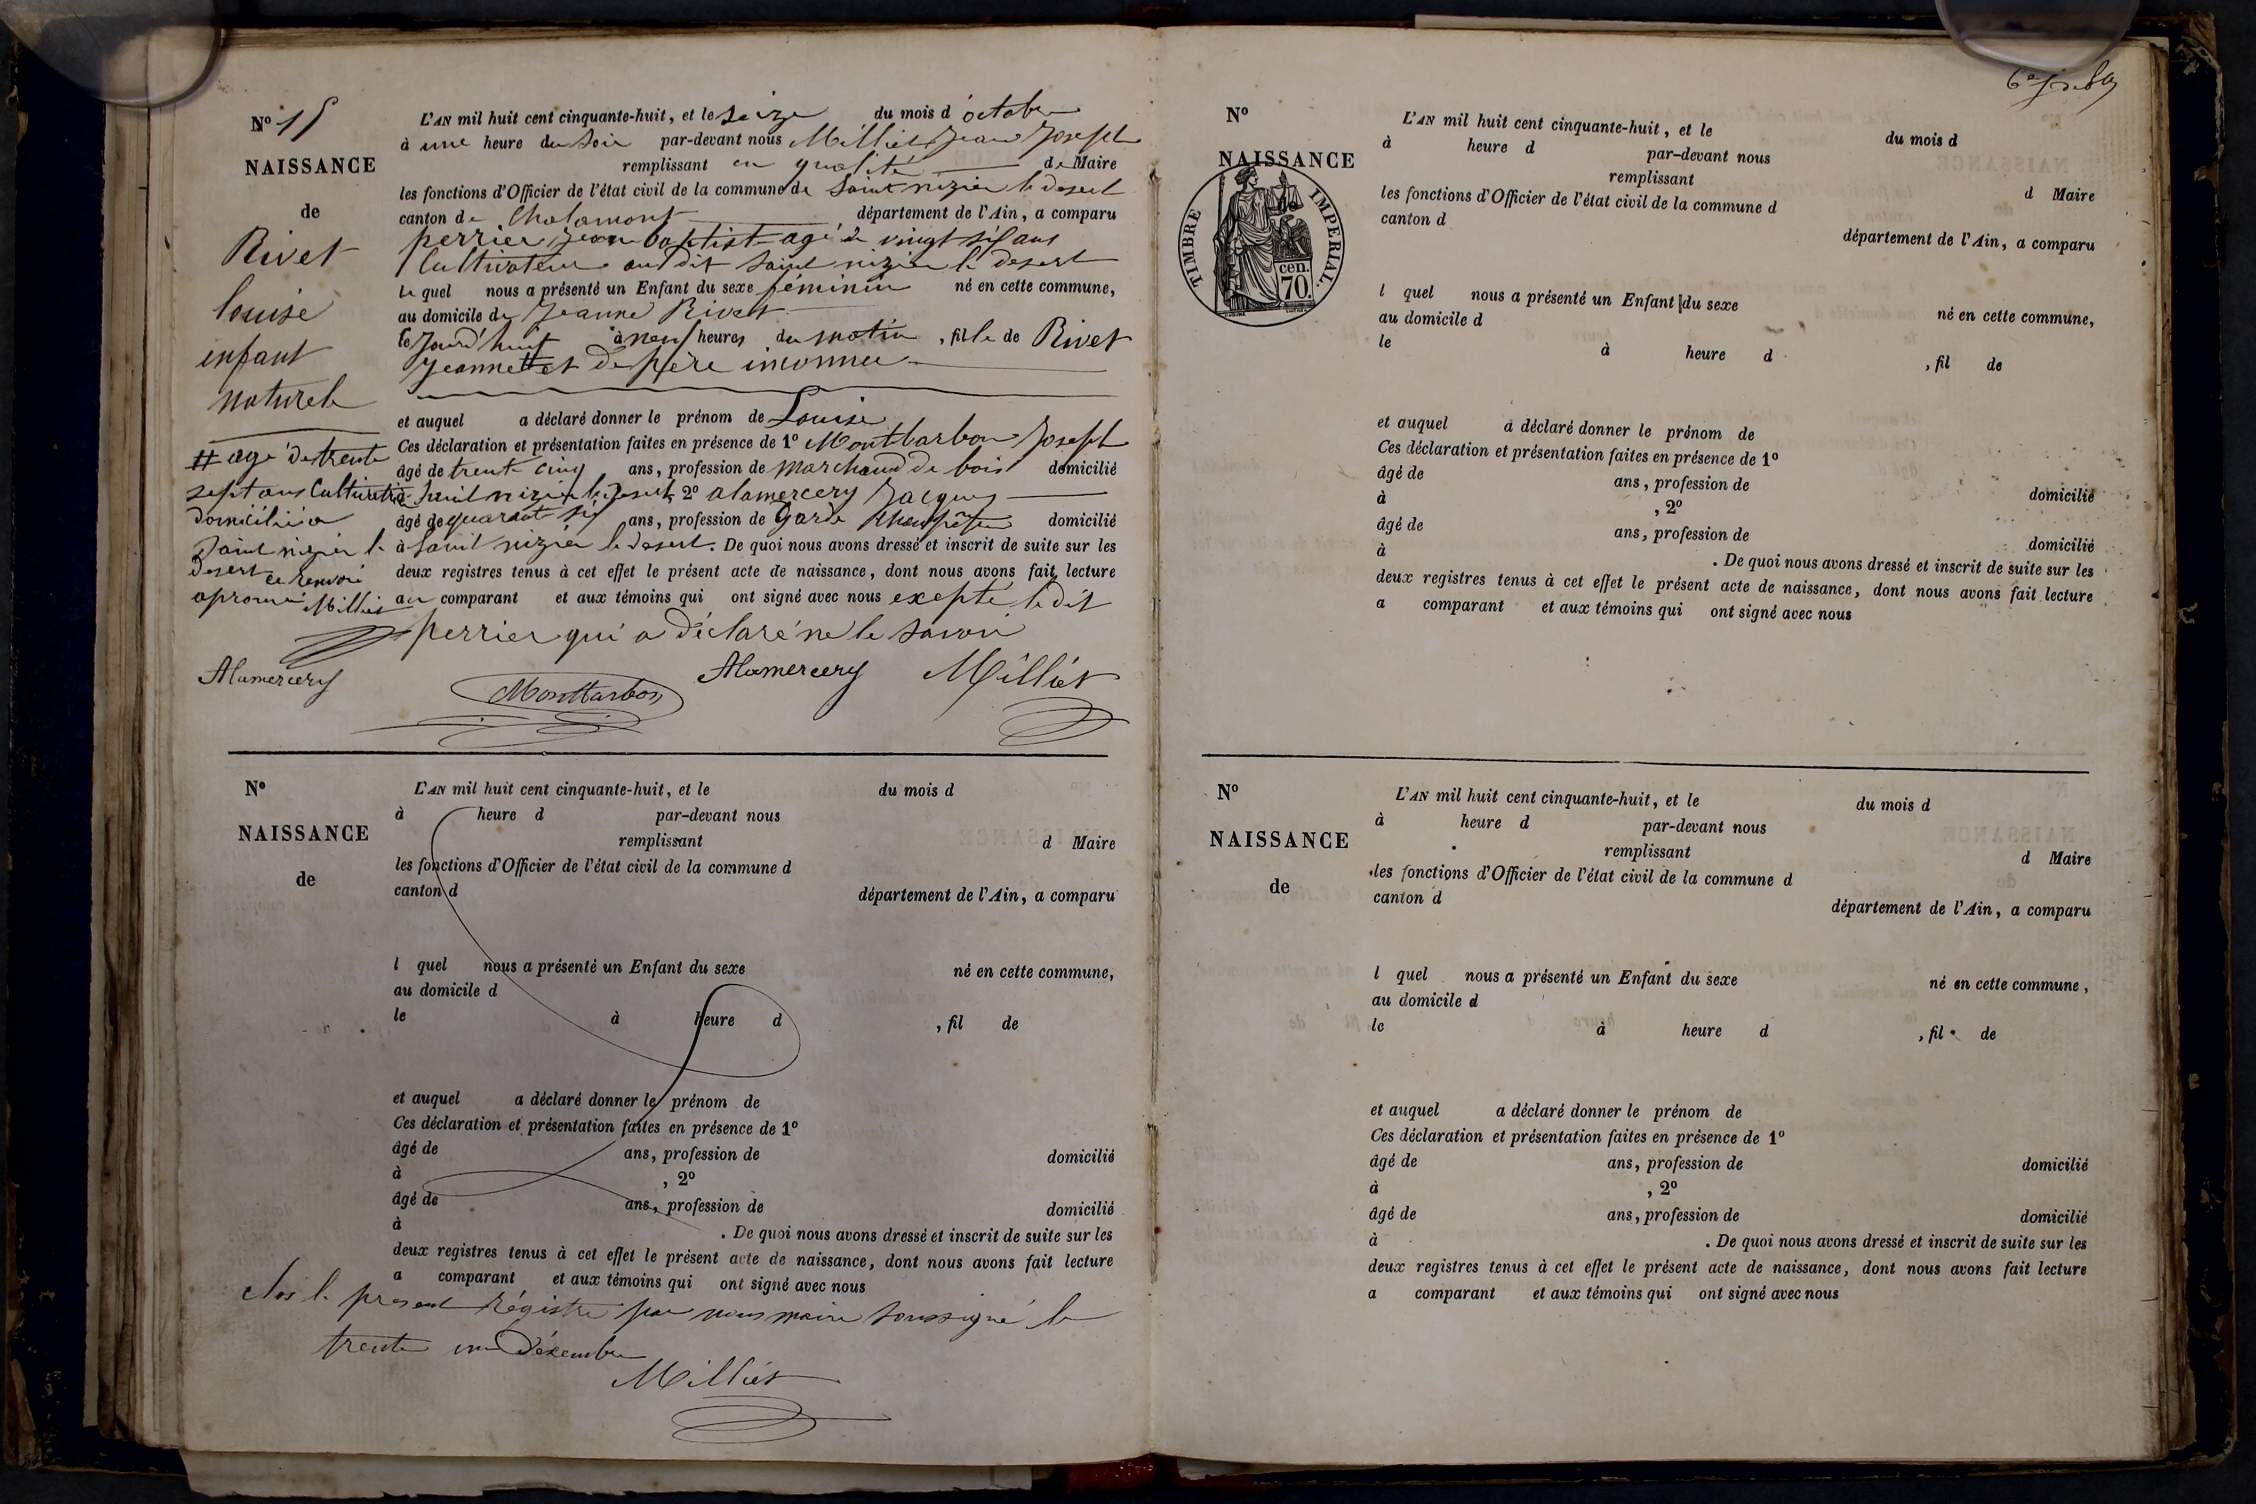 N.º 15
NAISSANCE
de
Rivet
louise
enfant
naturele
# agé de trente
sept ans Cultivatrice
domicilié a
Saint nizier le
desert ce renvoi
aprouvé Milliet
L'AN mil huit cent cinquante-huit, et le seize du mois d'octobre
à une heure du soir par-devant nous Milliet Jean Joseph
remplissant en qualité de Maire
les fonctions d'Officier de l'état civil de la commune de Saint nizier le desert
canton de Chalamont département de l'Ain, a comparu
perrier jean baptiste agé de vingt six ans
Cultivateur au dit Saint nizier le desert
Le quel nous a présenté un Enfant du sexe féminin né en cette commune,
au domicile de Jeanne Rivet
le Jourd'huit à neuf heures du matin, fille de Rivet
Jeanne # et de père inconnu
et auquel a déclaré donner le prénom de Louise
Ces déclaration et présentation faites en présence de 1º Montbarbon Joseph
âgé de trente cinq ans, profession de marchand de bois domicilié
à Saint nizier le desert, 2º alamercery Jacques
âgé de quarante six ans, profession de Garde Champêtre domicilié
à Saint nizier le desert. De quoi nous avons dressé et inscrit de suite sur les
deux registres tenus à cet effet le présent acte de naissance, dont nous avons fait lecture
au comparant et aux témoins qui ont signé avec nous excepté le dit
perrier qui a déclaré ne le savoir
Alamercery Montbarbon Alamercery Milliet
Nº
NAISSANCE
de
L'AN mil huit cent cinquante-huit, et le du mois d
à heure d par-devant nous
remplissant d Maire
les fonctions d'Officier de l'état civil de la commune d
canton d
département de l'Ain, a comparu
l quel nous a présenté un Enfant du sexe né en cette commune,
au domicile d
le à heure d , fil de
et auquel a déclaré donner le prénom de
Ces déclaration et présentation faites en présence de 1º
âgé de ans, profession de domicilié
à , 2º
âgé de ans, profession de domicilié
à . De quoi nous avons dressé et inscrit de suite sur les
deux registres tenus à cet effet le présent acte de naissance, dont nous avons fait lecture
a comparant et aux témoins qui ont signé avec nous
Clos le present régistre par nous maire soussigné le
trente un Décembre
Milliet
Nº
NAISSANCE
TIMBRE IMPERIAL.
cen.
70.
L'AN mil huit cent cinquante-huit, et le du mois d
à heure d par-devant nous
remplissant d Maire
les fonctions d'Officier de l'état civil de la commune d
canton d
département de l'Ain, a comparu
l quel nous a présenté un Enfant du sexe né en cette commune,
au domicile d
le à heure d , fil de
et auquel a déclaré donner le prénom de
Ces déclaration et présentation faites en présence de 1º
âgé de ans, profession de domicilié
à , 2º
âgé de ans, profession de domicilié
à . De quoi nous avons dressé et inscrit de suite sur les
deux registres tenus à cet effet le présent acte de naissance, dont nous avons fait lecture
a comparant et aux témoins qui ont signé avec nous
Nº
NAISSANCE
de
L'AN mil huit cent cinquante-huit, et le du mois d
à heure d par-devant nous
remplissant d Maire
les fonctions d'Officier de l'état civil de la commune d
canton d
département de l'Ain, a comparu
l quel nous a présenté un Enfant du sexe né en cette commune,
au domicile d
le à heure d , fil de
et auquel a déclaré donner le prénom de
Ces déclaration et présentation faites en présence de 1º
âgé de ans, profession de domicilié
à , 2º
âgé de ans, profession de domicilié
à . De quoi nous avons dressé et inscrit de suite sur les
deux registres tenus à cet effet le présent acte de naissance, dont nous avons fait lecture
a comparant et aux témoins qui ont signé avec nous